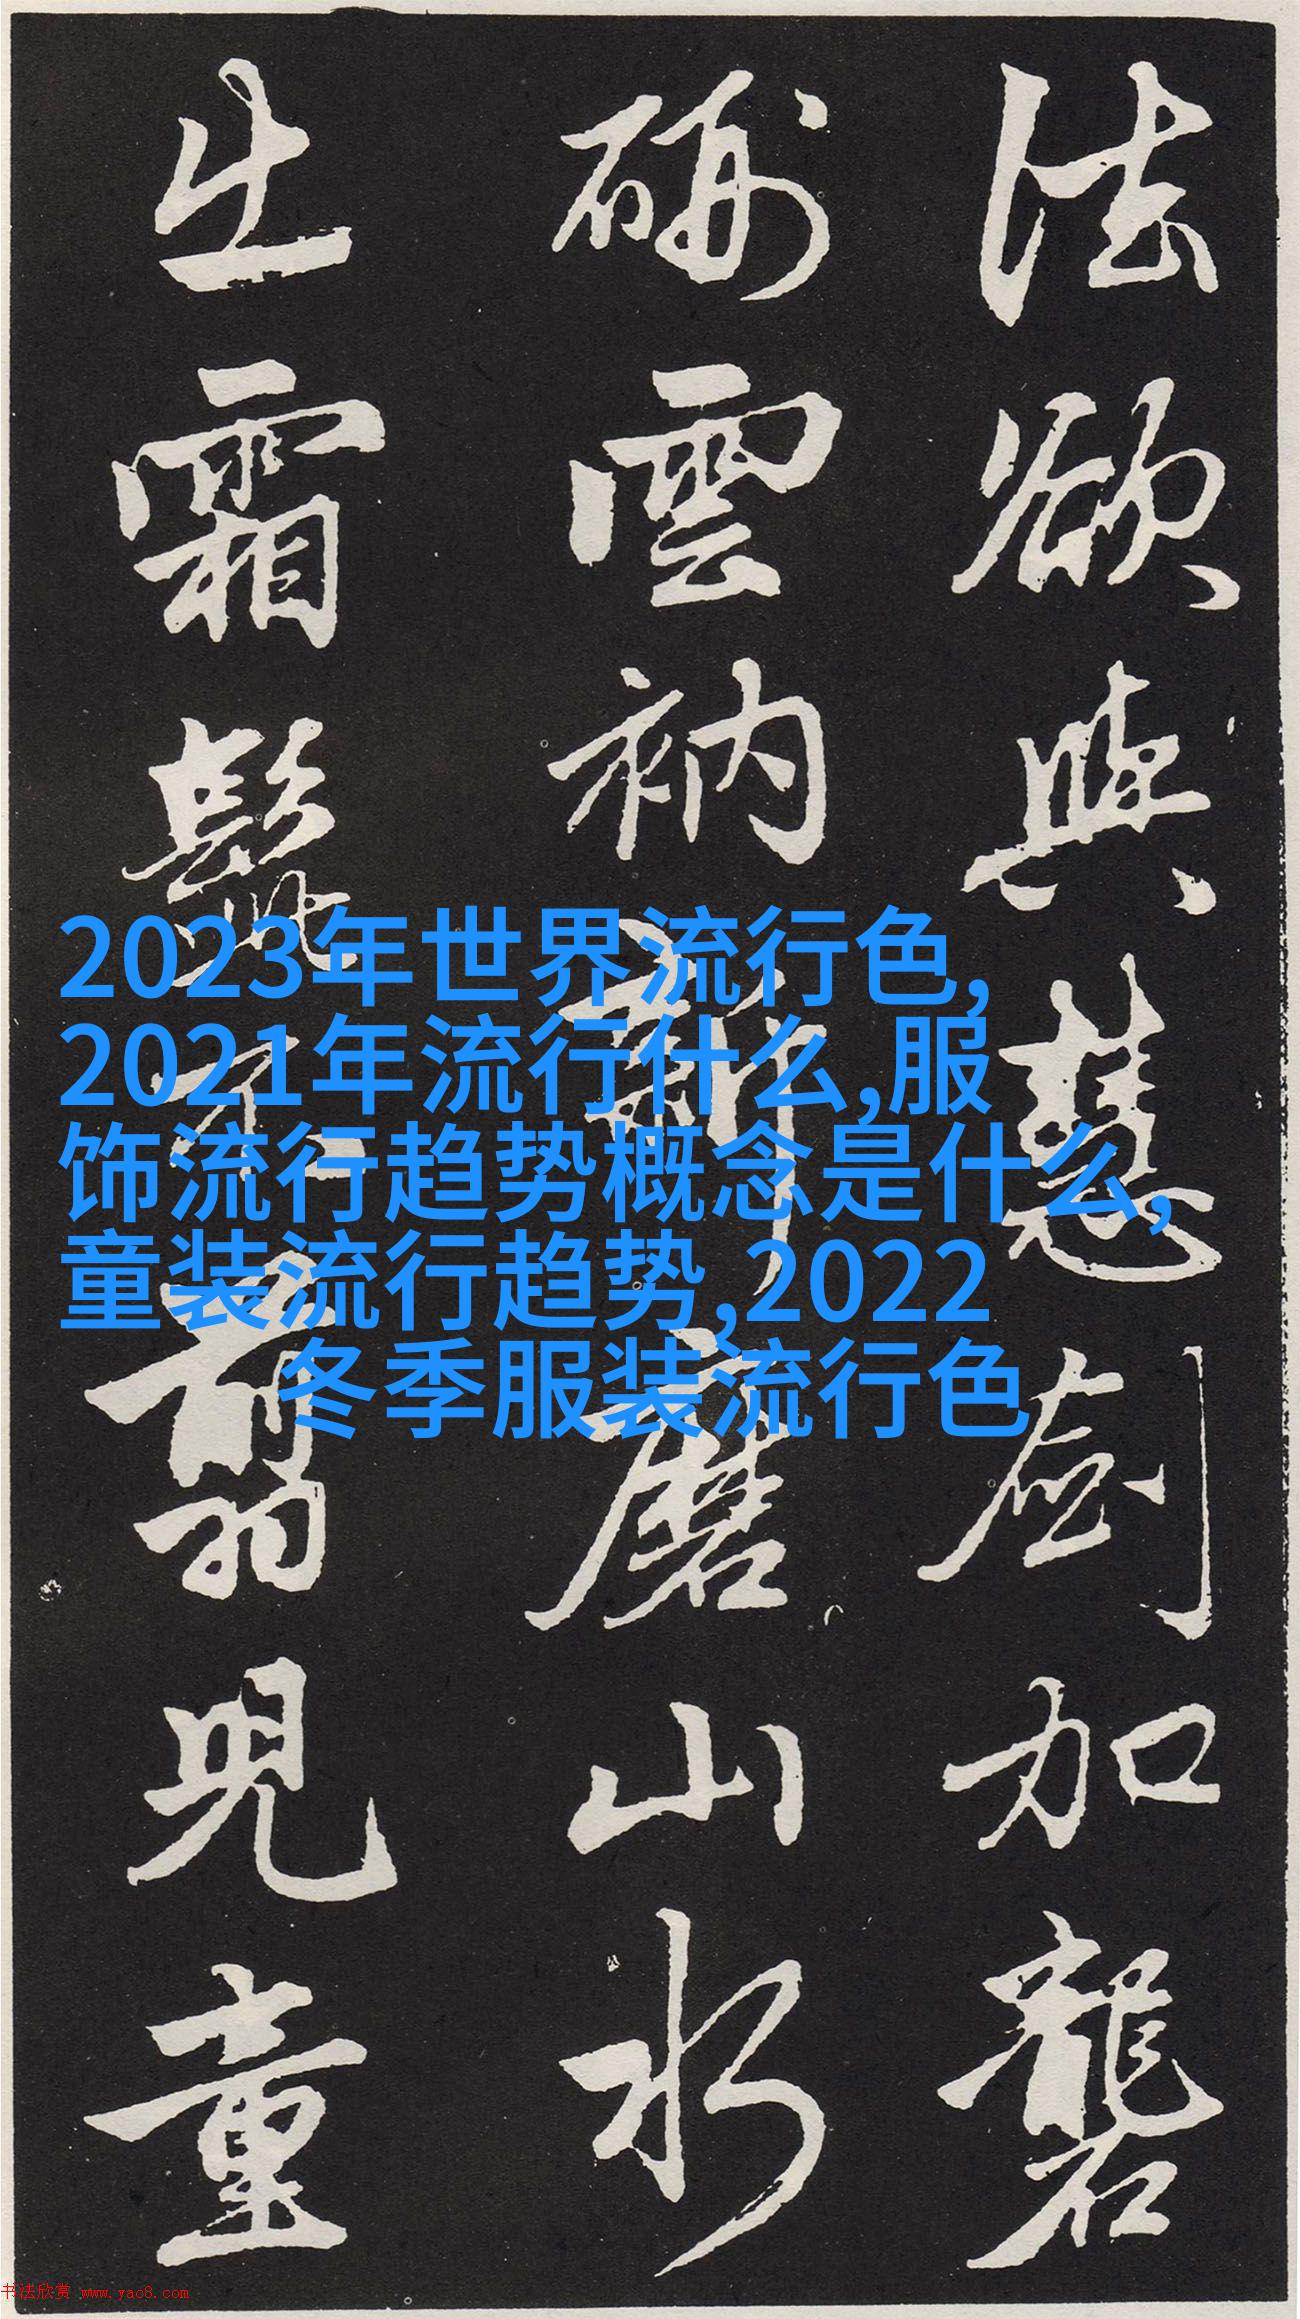 法欲與慧劍加礱
硎雲衲新磨山水
出霜髭不翦兒童
2023年世界流行色,
2021年流行什么,服
饰流行趋势概念是什么,
童装流行趋势,2022
冬季服装流行色
书法欣赏 www.yac8.com